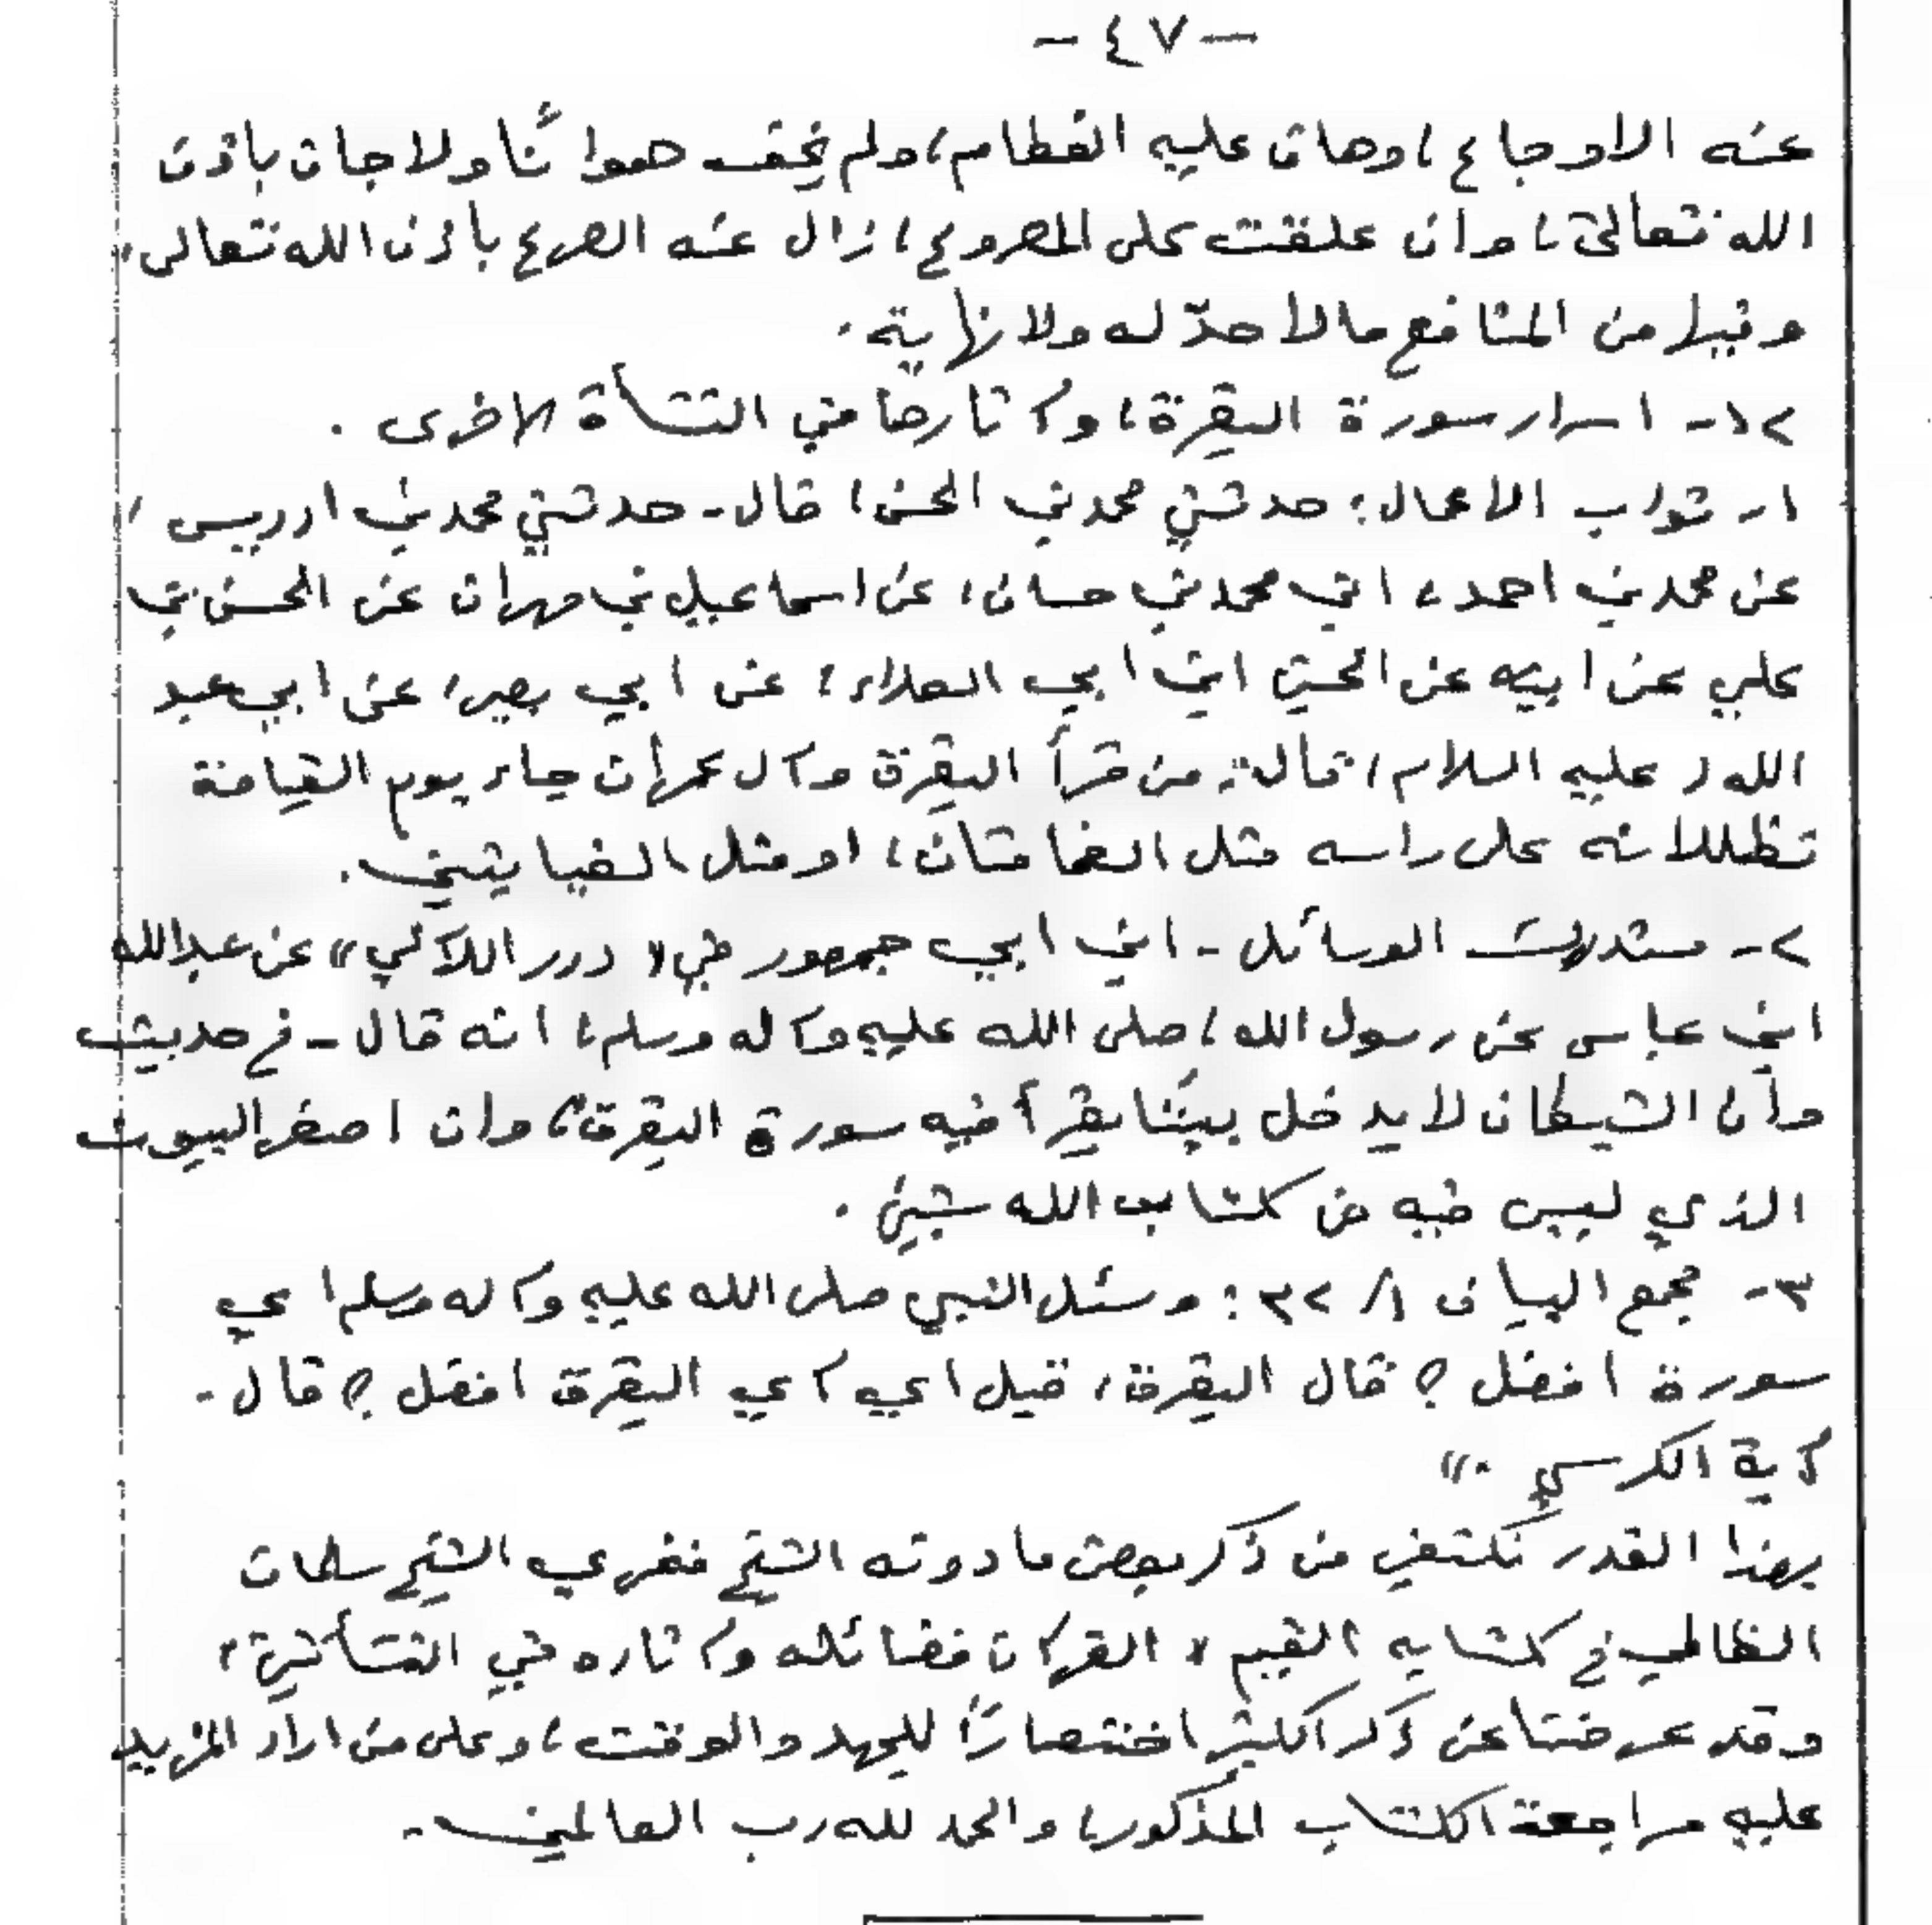 -٤٧-
عنه الاوجاع، وهان عليه الفطام، ولم يخف هوا ئنا ولا جان باذن
الله تعالى، وان علقت على المصروع، زال عنه الصرع بأذن الله تعالى،
وفيها من المنافع مالا حدّ له ولا نهاية.
١٢- اسرار سورة البقرة، وآثارها في النشأة الاخرى.
١- ثواب الاعمال: حدثني محمد بن الحسن، قال- حدثني محمد بن ادريس،
عن محمد بن احمد، ابن محمد بن حسان، عن اسماعيل بن مهران عن الحسن بن
علي عن ابيه عن الحسين ابن ابي العلاء، عن ابي بصير، عن ابي عبد
الله (عليه السلام، قال: من قرأ البقرة وآل عمرأن جاء يوم القيامة
تظللانه على راسه مثل الغمامتان، او مثل الغيايتين.
٢- مستدرك الوسائل- ابن ابي جمهور في «درر اللآلي» عن عبدالله
ابن عباس عن رسول الله، صلى الله عليه وآله وسلم، انه قال- في حديث
وأن الشيطان لا يدخل بيتنا يقرأ فيه سورة البقرة، وان اصفر البيوت
الذي ليس فيه من كتاب الله شيئ.
٣- مجمع البيان ١/ ٣٢: وسئل النبي صلى الله عليه وآله وسلم اي
سورة افضل؟ قال البقرة، قيل اي آي البقرة افضل؟ قال-
آية الكرسي.»
بهذا القدر نكتفي من ذكر بعض ما دونه الشيخ فغري الشيخ سلمان
الظالمي في كتابه القيم، القرآن فضائله وآثاره في النشأتين،
وقد عرضنا عن ذكر الكثير اختصارًا للجهد والوقت، وعلى من اراد المزيد
عليه مراجعة الكتاب المذكور، والحمد لله رب العالمين.